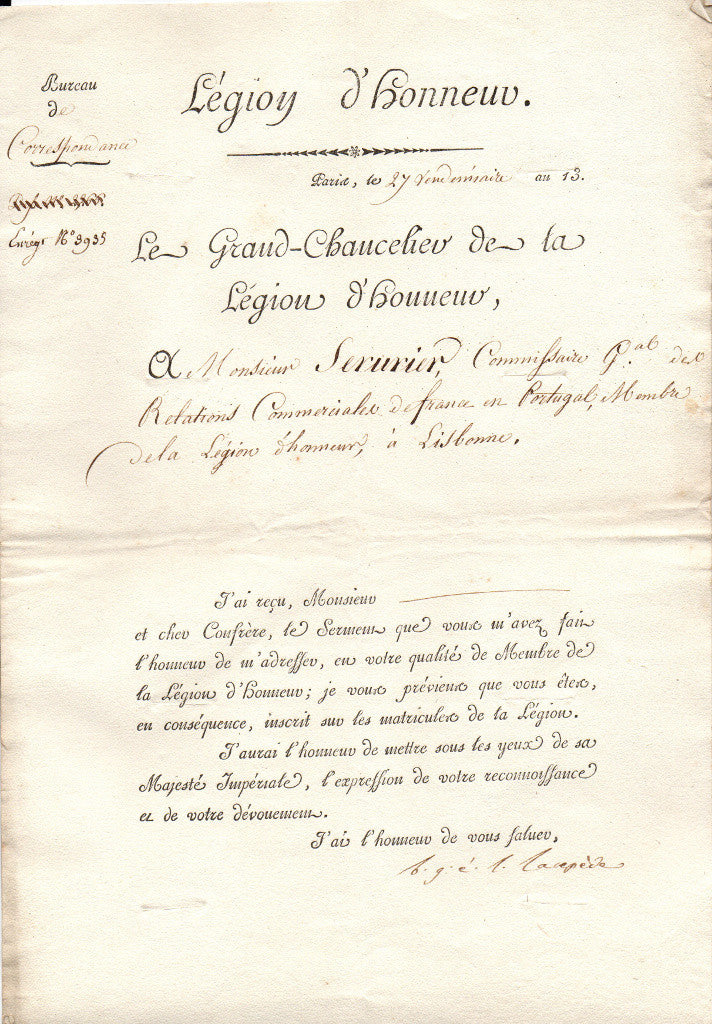 Bureau
de
Correspondance
Enregt. N.º 3935
Légion d'Honneur.
Paris, le 27 Vendemiaire an 13.
Le Grand-Chancelier de la
Légion d'Honneur,
A Monsieur Serurier, Commissaire G.al des
Relations Commerciales de france en Portugal, Membre
de la Légion d'honneur, à Lisbonne.
J'ai reçu, Monsieur
et cher Confrère, le Serment que vous m'avez fait
l'honneur de m'adresser, en votre qualité de Membre de
la Légion d'Honneur; je vous préviens que vous êtes,
en conséquence, inscrit sur les matricules de la Légion.
J'aurai l'honneur de mettre sous les yeux de sa
Majesté Impériale, l'expression de votre reconnoissance
et de votre dévouement.
J'ai l'honneur de vous saluer,
b. g. é. l. Lacepède